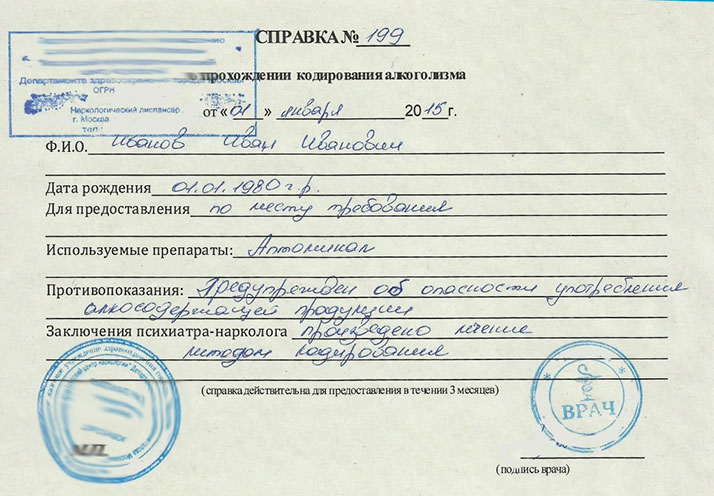 СПРАВКА № 199
прохождении кодирования алкоголизма
Департамента здравоохранения города Москвы
ОГРН
Наркологический диспансер
г. Москва
тел.:
от « 01 » января 2015 г.
Ф.И.О. Иванов Иван Иванович
Дата рождения 01.01.1980 г.р.
Для предоставления по месту требования
Используемые препараты: Аптоминал
Противопоказания: Предупрежден об опасности употребления
алкосодержащей продукции
Заключения психиатра-нарколога произведено лечение
методом кодирования
(справка действительна для предоставления в течении 3 месяцев)
Врач
ВРАЧ
М.П.
(подпись врача)